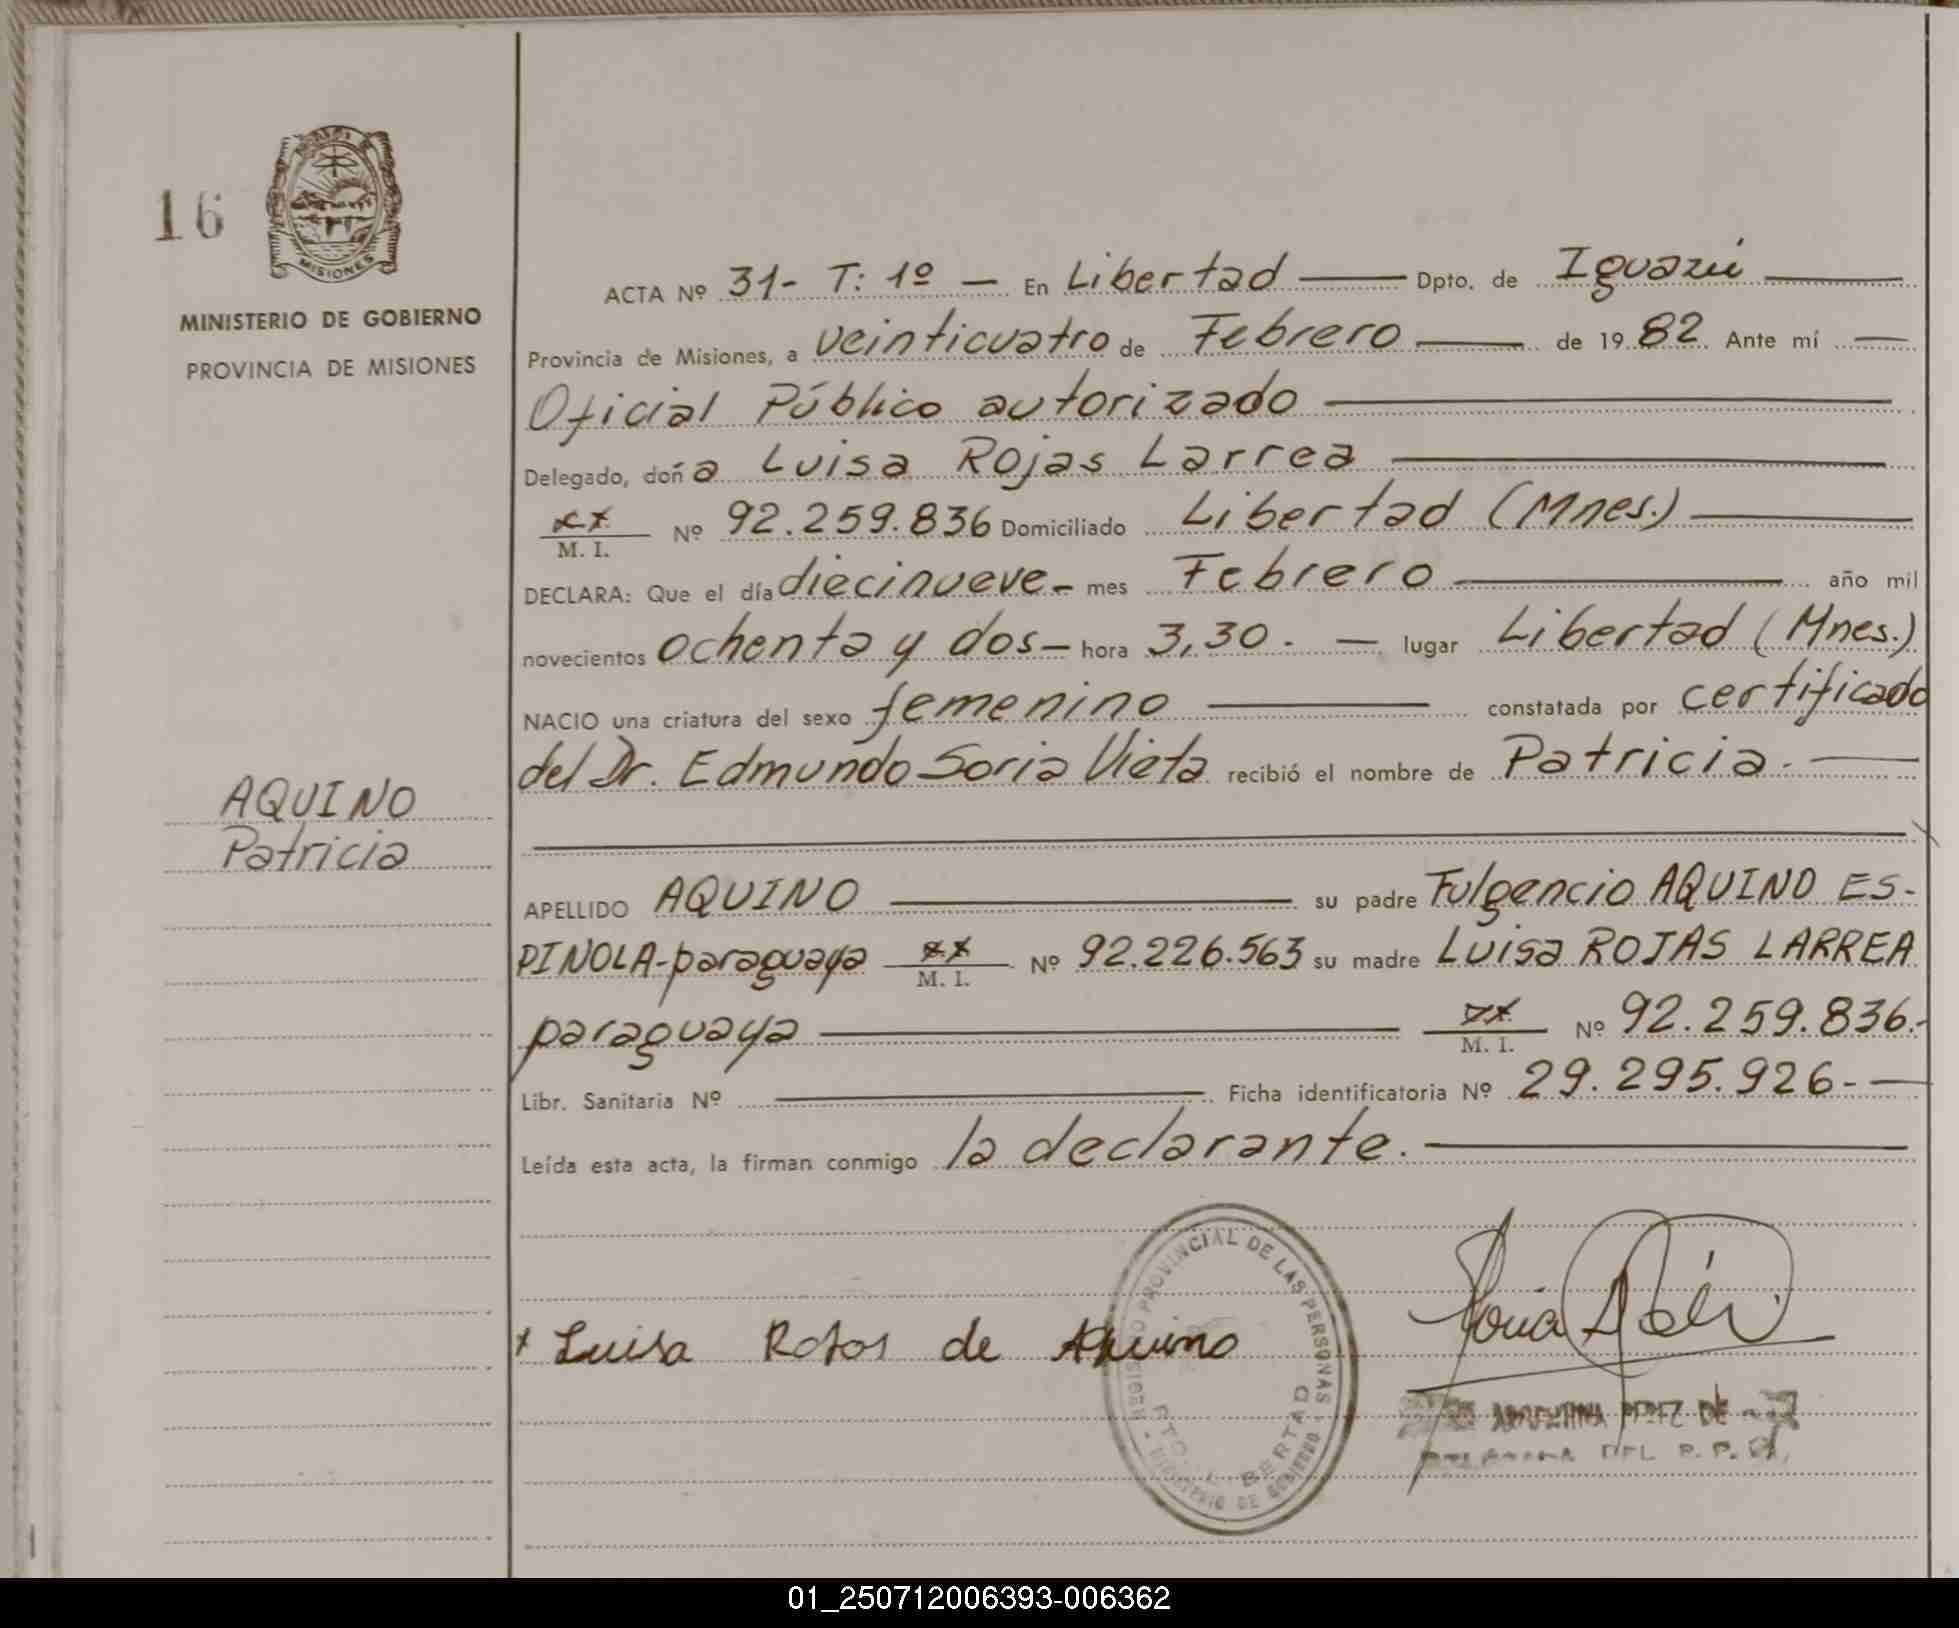 16
MISIONES
MINISTERIO DE GOBIERNO
PROVINCIA DE MISIONES
AQUINO
Patricia
ACTA Nº 31- T: 1º — En Libertad — Dpto. de Iguazú —
Provincia de Misiones, a veinticuatro de Febrero — de 19 82 Ante mí —
Oficial Público autorizado —
Delegado, doña Luisa Rojas Larrea —
xx M. I. Nº 92.259.836 Domiciliado Libertad (Mnes.) —
DECLARA: Que el día diecinueve.- mes Febrero — año mil
novecientos ochenta y dos — hora 3,30. — lugar Libertad (Mnes.)
NACIO una criatura del sexo femenino — constatada por certificado
del Dr. Edmundo Soria Vieta recibió el nombre de Patricia. —
APELLIDO AQUINO — su padre Fulgencio AQUINO ES-
PINOLA-paraguaya xx M. I. Nº 92.226.563 su madre Luisa ROJAS LARREA
paraguaya — xx M. I. Nº 92.259.836.-
Libr. Sanitaria Nº — Ficha identificatoria Nº 29.295.926.- —
Leída esta acta, la firman conmigo la declarante. —
x Luisa Rojas de Aquino
PROVINCIAL DE LAS PERSONAS
MINISTERIO DE GOBIERNO
LIBERTAD
ARGENTINA PEREZ DE
DEL R. P.
01_250712006393-006362